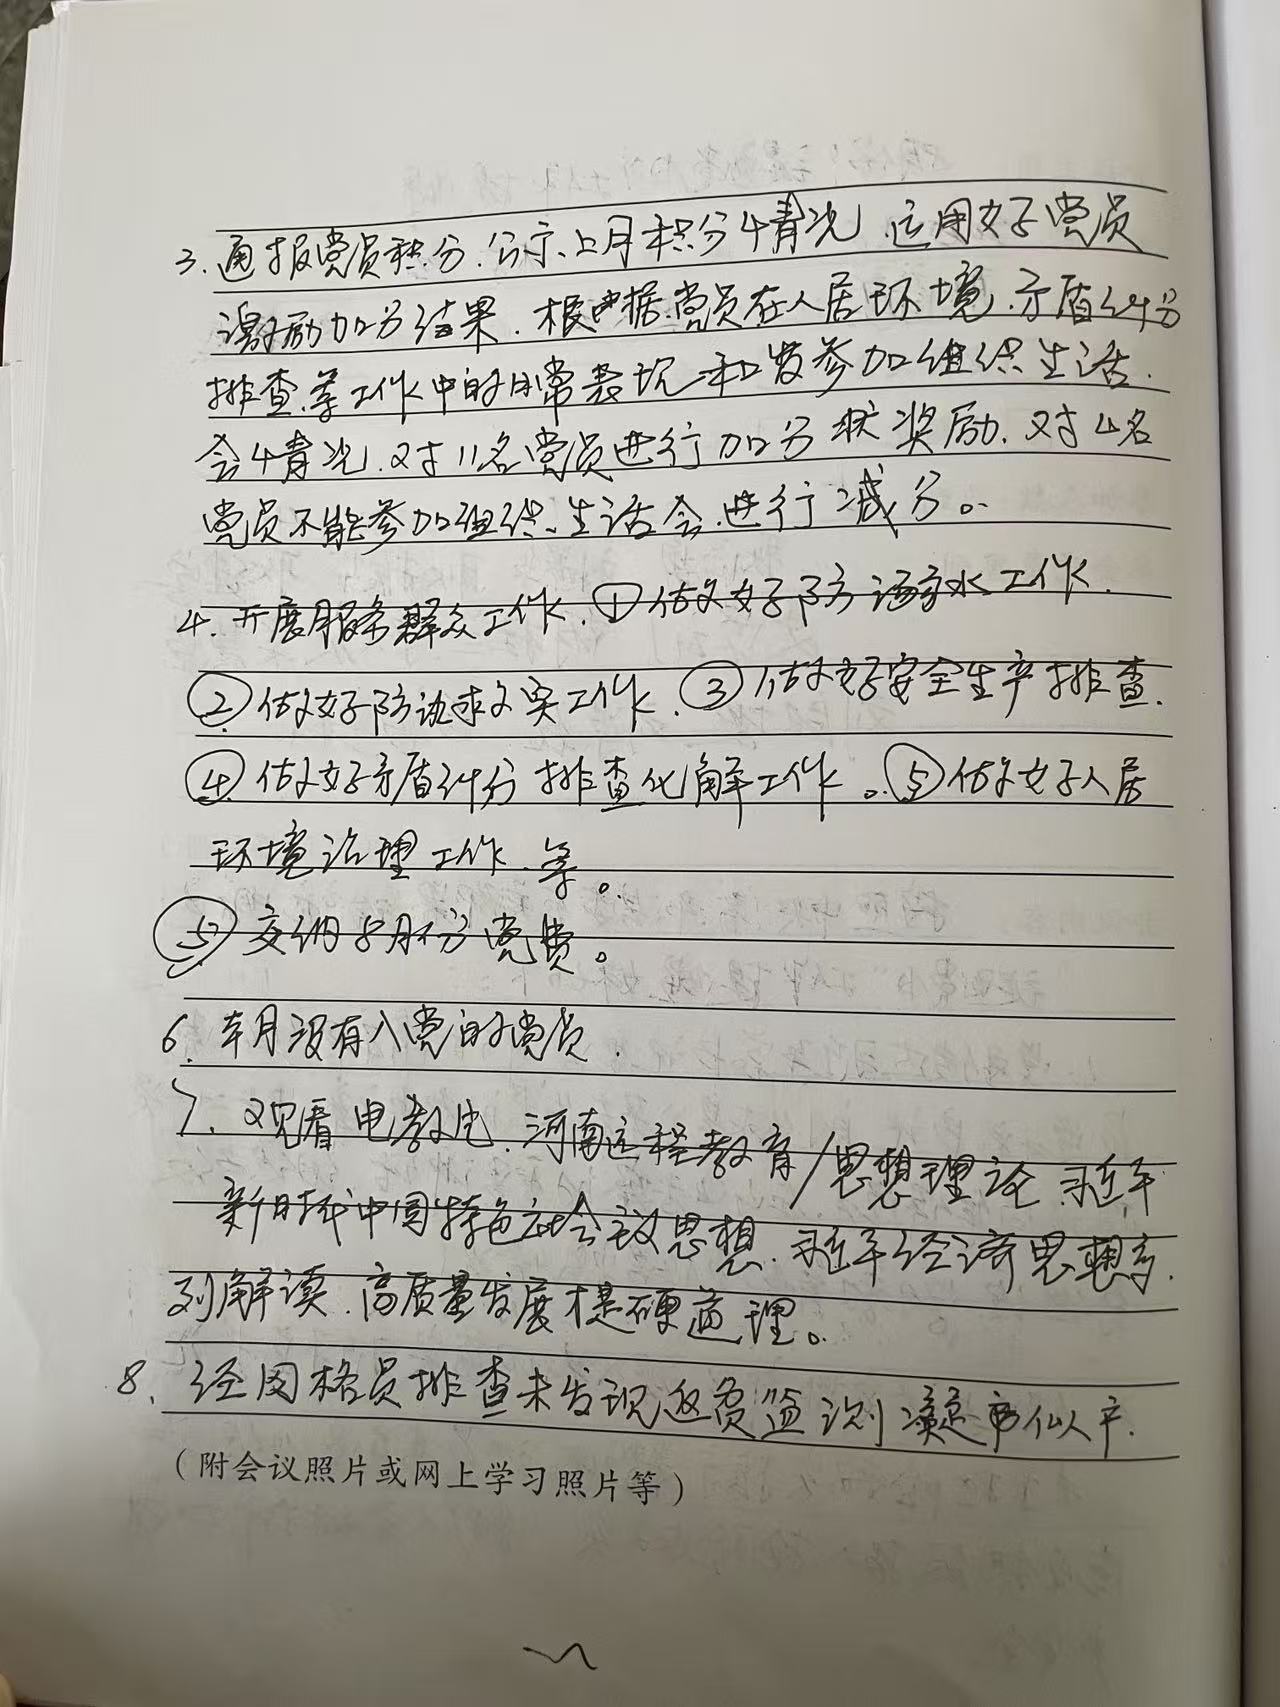 3. 通报党员积分.公示上月积分情况.运用好党员
激励加分结果.根据党员在人居环境.矛盾纠纷
排查等工作中的日常表现和参加组织生活
会情况.对11名党员进行加分奖励.对4名
党员不能参加组织生活会进行减分。
4. 开展服务群众工作.①做好防溺水工作.
②做好防工作.③做好安全生产排查.
④做好矛盾纠纷排查化解工作。⑤做好人居
环境治理工作.等。
⑤ 交纳8月份党费。
6. 本月没有入党的党员.
7. 观看电教片.河南远程教育/思想理论 习近平
新时代中国特色社会主义思想.习近平经济思想系
列解读.高质量发展才是硬道理。
8. 经网格员排查未发现返贫监测凝似户.
(附会议照片或网上学习照片等)